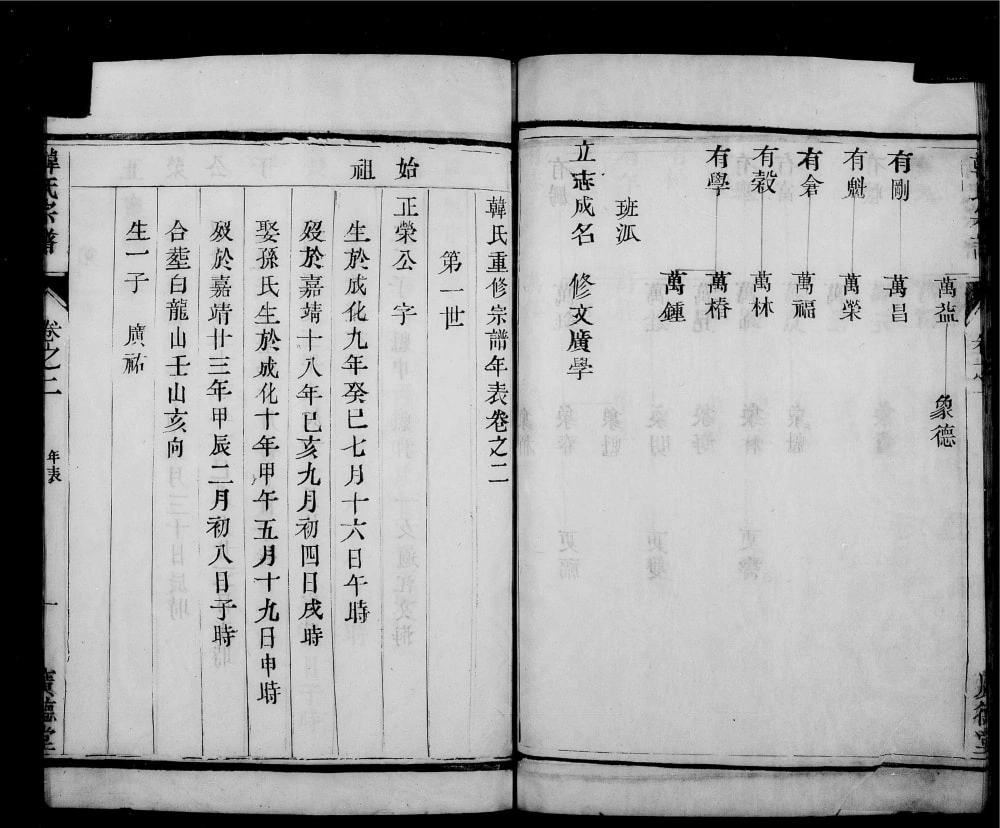 萬益 象德
有剛 萬昌
有魁 萬榮
有倉 萬福
有穀 萬林
有學 萬椿
萬鍾
班派
立志成名 修文廣學
韓氏重修宗譜年表卷之二
第一世
始祖
正榮公 字
生於成化九年癸巳七月十六日午時
歿於嘉靖十八年已亥九月初四日戌時
娶孫氏生於成化十年甲午五月十九日申時
歿於嘉靖廿三年甲辰二月初八日子時
合塟白龍山壬山亥向
生一子 廣祐
韓氏宗譜 卷之二 年表 一 廣德堂